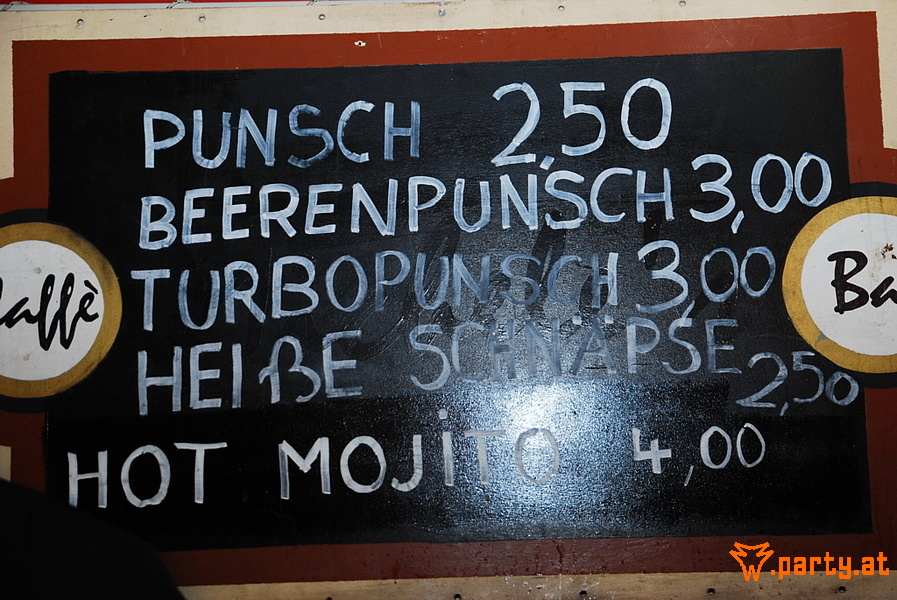 PUNSCH 2,50
BEERENPUNSCH 3,00
TURBOPUNSCH 3,00
HEIßE SCHNÄPSE 2,50
HOT MOJiTO 4,00
affè
Bà
w.party.at